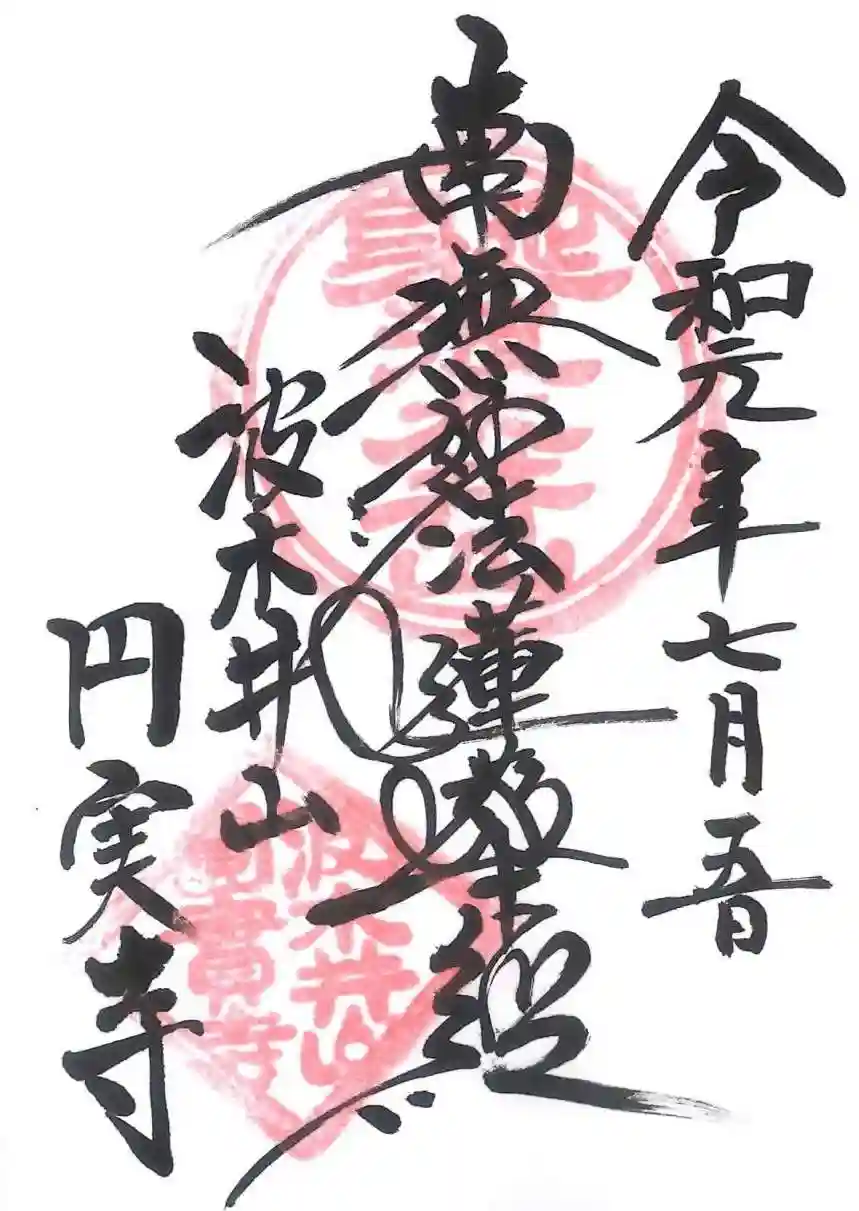 令和元年七月五日
南無妙法蓮華経
波木井山
円実寺
波木井山
圓實寺